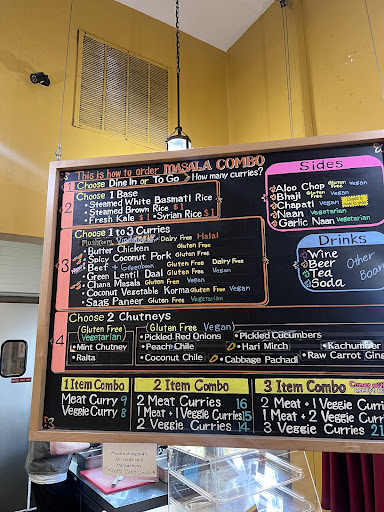 This is how to order MASALA COMBO
1 Choose Dine In or To Go How many curries?
2 Choose 1 Base
• Steamed White Basmati Rice
• Steamed Brown Rice $1
• Fresh Kale $1 • Syrian Rice $1
3 Choose 1 to 3 Curries
Dairy Free Halal
• Butter Chicken Gluten Free
• Spicy Coconut Pork Gluten Free
• Beef + Gluten Free Dairy Free
• Green Lentil Daal Gluten Free Vegan
• Chana Masala Gluten Free Vegan
• Coconut Vegetable Korma Gluten Free Vegan
• Saag Paneer Gluten Free Vegetarian
4 Choose 2 Chutneys
(Gluten Free Vegetarian)
• Mint Chutney
• Raita
(Gluten Free Vegan)
• Pickled Red Onions • Pickled Cucumbers
• Peach Chile • Hari Mirch • Kachumber
• Coconut Chile • Cabbage Pachadi • Raw Carrot Ging
1 Item Combo
Meat Curry 9
Veggie Curry 8
2 Item Combo
2 Meat Curries 16
1 Meat + 1 Veggie Curries 15
2 Veggie Curries 14
3 Item Combo
2 Meat + 1 Veggie Curri
1 Meat + 2 Veggie Curri
3 Veggie Curries 21
Sides
• Aloo Chop Gluten Free Vegan
• Bhaji Gluten Free Vegan
• Chapati Vegan
• Naan Vegetarian
• Garlic Naan Vegetarian
Drinks
• Wine
• Beer
• Tea
• Soda
Other
Boar